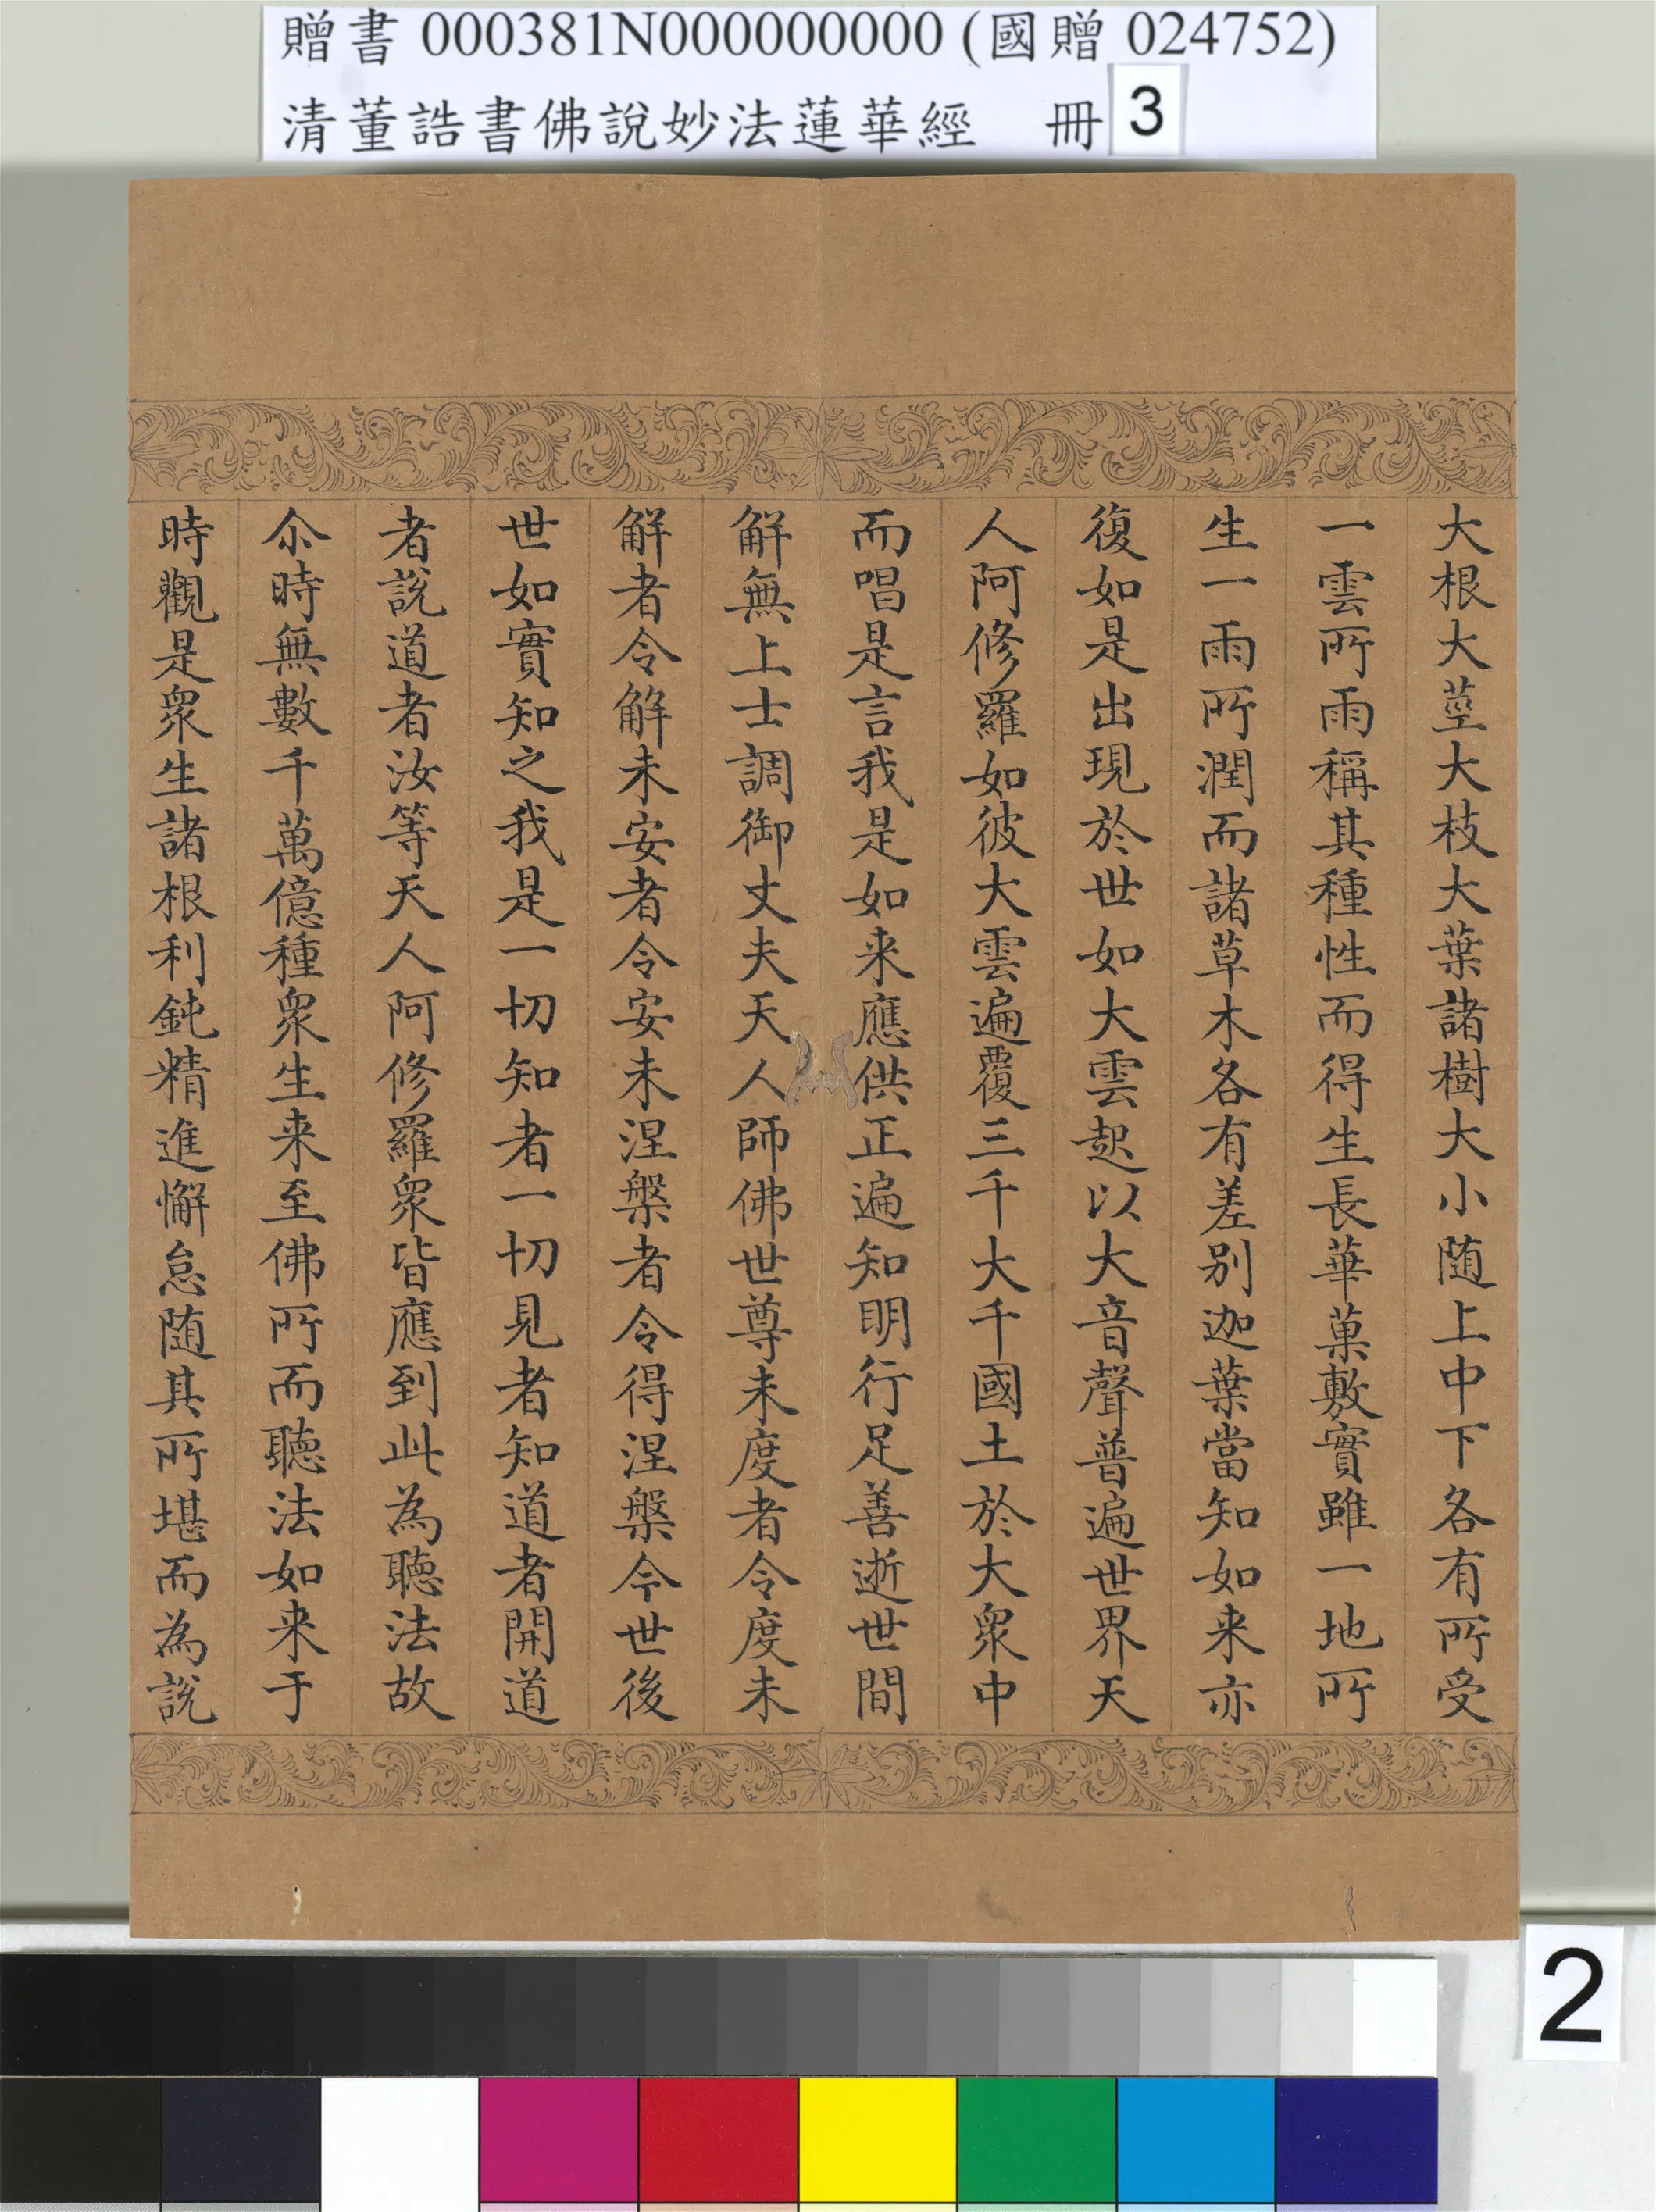 贈書 000381N000000000 (國贈 024752)
清董誥書佛說妙法蓮華經 冊 3
大根大莖大枝大葉諸樹大小随上中下各有所受
一雲所雨稱其種性而得生長華菓敷實雖一地所
生一雨所潤而諸草木各有差别迦葉當知如来亦
復如是出現於世如大雲起以大音聲普遍世界天
人阿修羅如彼大雲遍覆三千大千國土於大衆中
而唱是言我是如来應供正遍知明行足善逝世間
解無上士調御丈夫天人師佛世尊未度者令度未
解者令解未安者令安未涅槃者令得涅槃今世後
世如實知之我是一切知者一切見者知道者開道
者說道者汝等天人阿修羅衆皆應到此為聽法故
尒時無數千萬億種衆生来至佛所而聽法如来于
時觀是衆生諸根利鈍精進懈怠随其所堪而為說
2